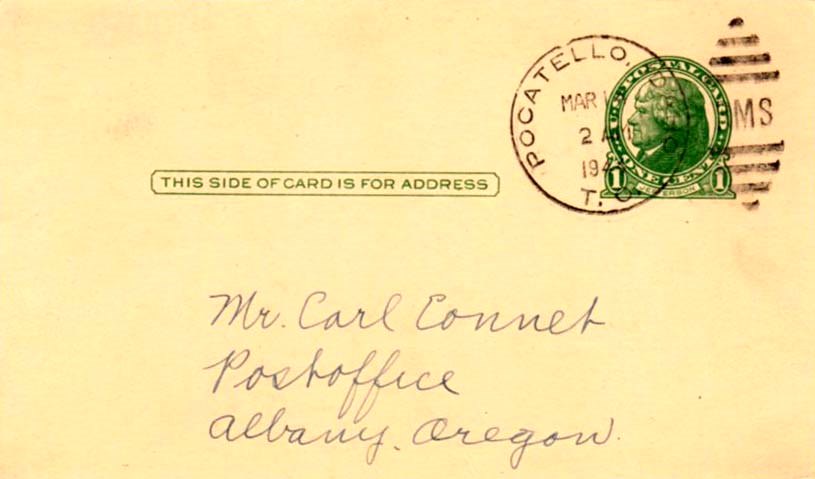 POCATELLO,
MAR
2 A
19
T. O
MS
U.S. POSTAL CARD
ONE CENT
1 JEFFERSON 1
THIS SIDE OF CARD IS FOR ADDRESS
Mr. Carl Connet
Postoffice
Albany, Oregon.